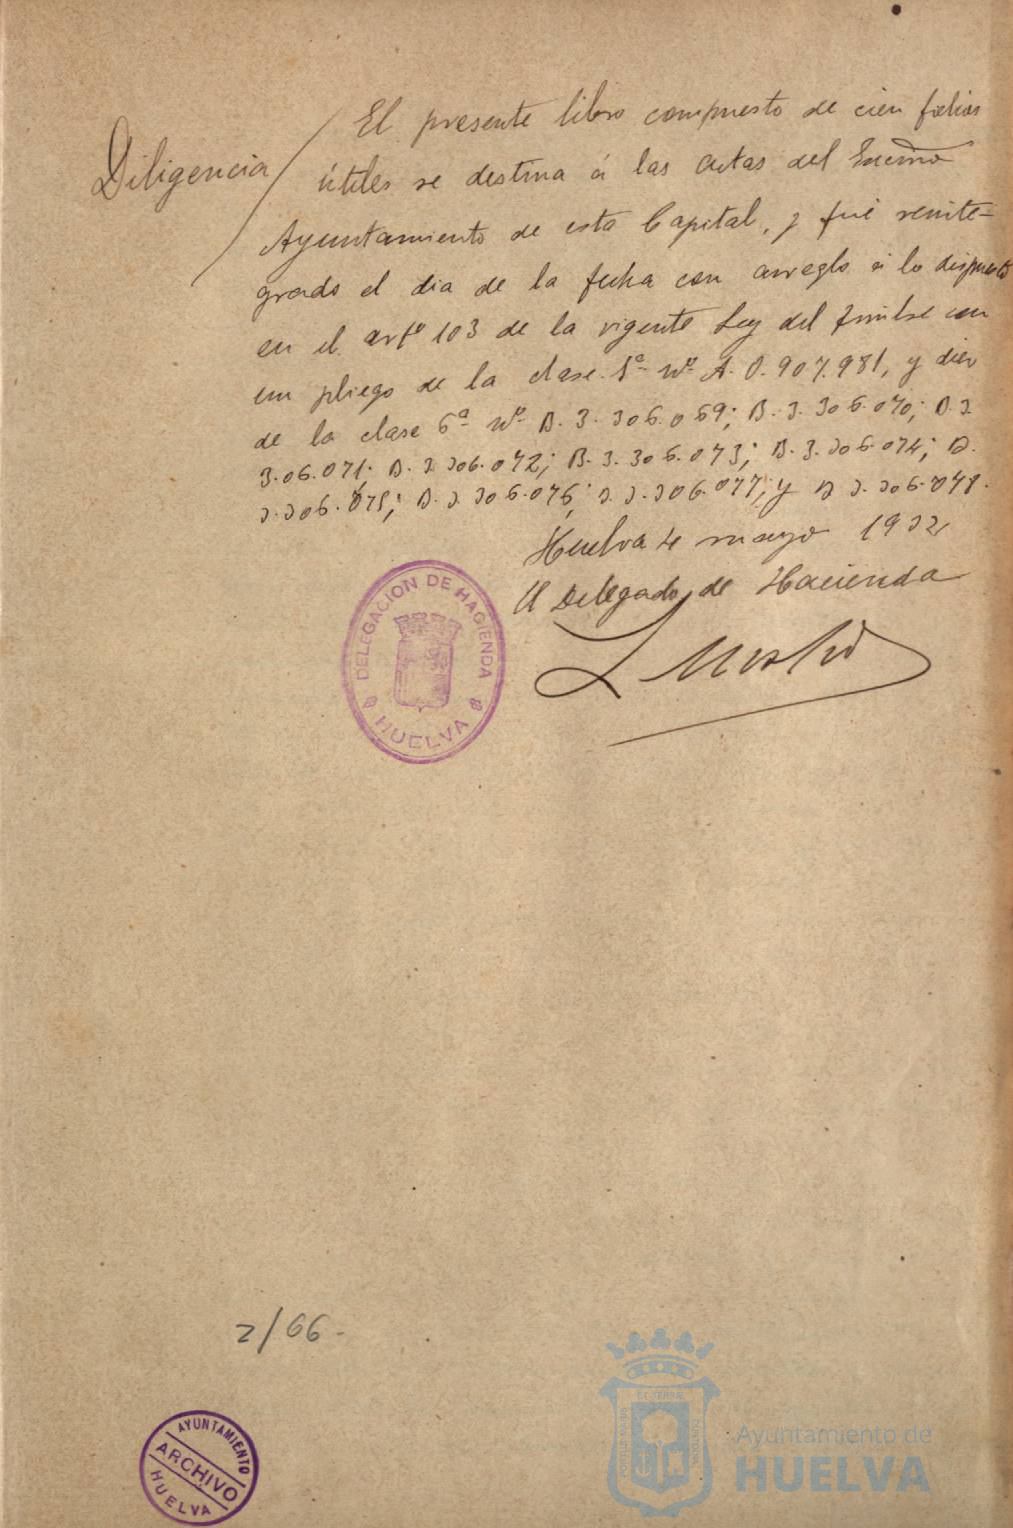 Diligencia / El presente libro compuesto de cien folios
útiles se destina á las actas del Excmo
Ayuntamiento de esta Capital, y fué reinte-
grado el dia de la fecha con arreglo á lo dispuesto
en el artº 103 de la vigente Ley del Timbre con
un pliego de la clase 1ª nº A. 0.907.981, y diez
de la clase 6ª nº B. 3.306.069; B. 3.306.070; B. 3.
3.06.071; B. 3.306.072; B. 3.306.073; B. 3.306.074; B.
3.306.075; B. 3.306.076; B. 3.306.077; y B 3.306.078.
Huelva 4 mayo 1932
El Delegado de Hacienda
DELEGACION DE HACIENDA
HUELVA
2/66-
AYUNTAMIENTO
ARCHIVO
HUELVA
Ayuntamiento de
HUELVA